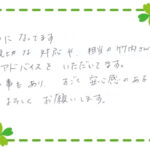 になってます
対応や、担当の竹内さん
アドバイスを いただいてます。
事もあり、すごく安心感のある
よろしく お願いします。